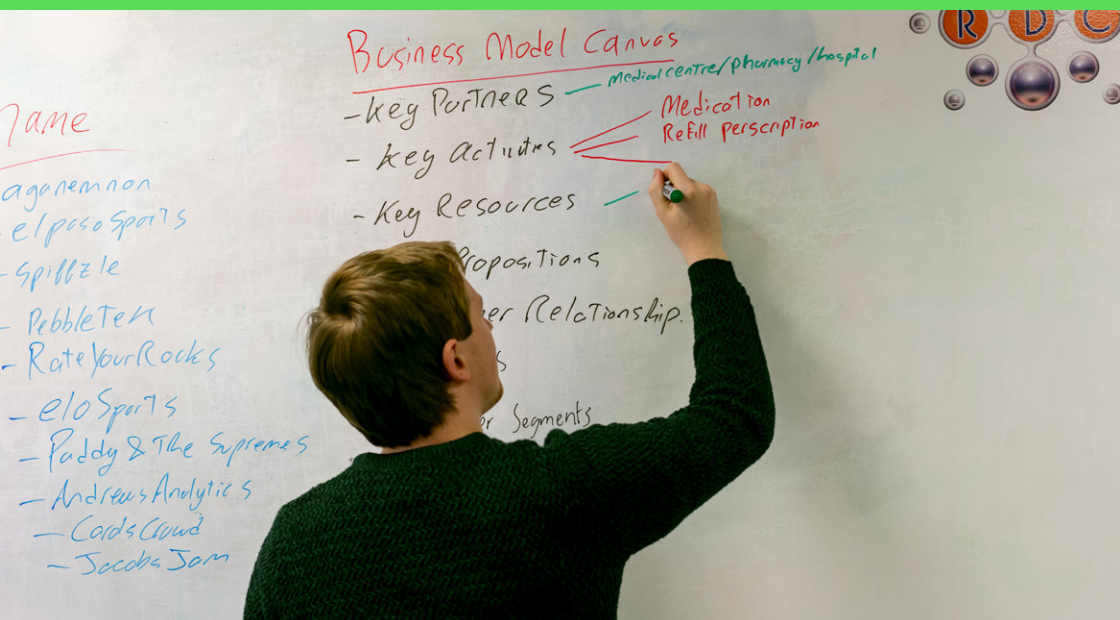 Name
aganemnon
- elpasoSports
- Spiffzle
- PebbleTek
- RateYourRocks
- eloSports
- Paddy & The Supremes
- Andrews Analytics
- CardsCrowd
- Jacobs Jam
Business Model Canvas
- Key Partners - Medical centre/pharmacy/hospital
- Key Activities
Medication
Refill perscription
- Key Resources
Propositions
Relationship.
Segments
R D C